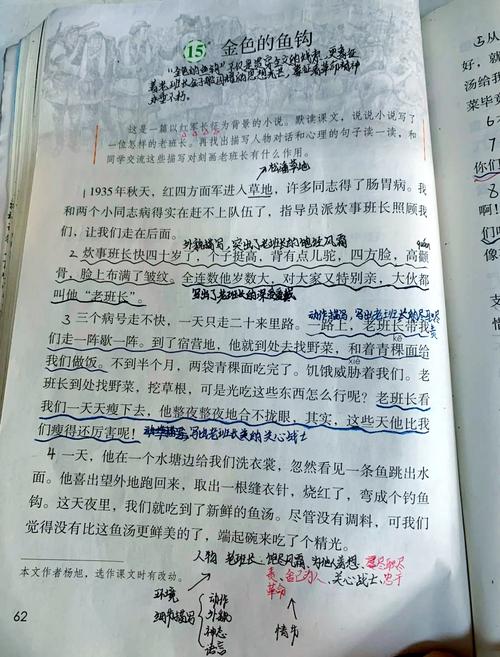 15 金色的鱼钩
"金色的鱼钩"不仅是
着老班长金子般闪耀的思想光芒，象征着革命精神
永垂不朽。
这是一篇以红军长征为背景的小说。默读课文，说说小说写了
一位怎样的老班长。再找出描写人物对话和心理的句子读一读，和
同学交流这些描写对刻画老班长有什么作用。
松潘草地
1935年秋天，红四方面军进入草地，许多同志得了肠胃病。我
和两个小同志病得实在赶不上队伍了，指导员派炊事班长照顾我
们，让我们走在后面。
外貌描写，突出了老班长的饱经风霜
quán
2 炊事班长快四十岁了，个子挺高，背有点儿驼，四方脸，高颧
骨，脸上布满了皱纹。全连数他岁数大，对大家又特别亲，大伙都
叫他"老班长"。
写出了老班长的深受
动作描写，写出老班长的尽职尽
责
3 三个病号走不快，一天只走二十来里路。一路上，老班长带我
们走一阵歇一阵。到了宿营地，他就到处去找野菜，和着青稞面给
kē
我们做饭。不到半个月，两袋青稞面吃完了。饥饿威胁着我们。老
xié
班长到处找野菜，挖草根，可是光吃这些东西怎么行呢？老班长看
我们一天天瘦下去，他整夜整夜地合不拢眼，其实，这些天他比我
们瘦得还厉害呢！
写出老班长关心战士
4 一天，他在一个水塘边给我们洗衣裳，忽然看见一条鱼跳出水
面。他喜出望外地跑回来，取出一根缝衣针，烧红了，弯成个钓鱼
钩。这天夜里，我们就吃到了新鲜的鱼汤。尽管没有调料，可我们
觉得没有比这鱼汤更鲜美的了，端起碗来吃了个精光。
人物 老班长：饱尽风霜、为他人着想、尽职尽
责、舍己为人、关心战士、忠于
革命
本文作者杨旭，选作课文时有改动。
环境
细节描写
动作
外貌
神态
语言
情节
62